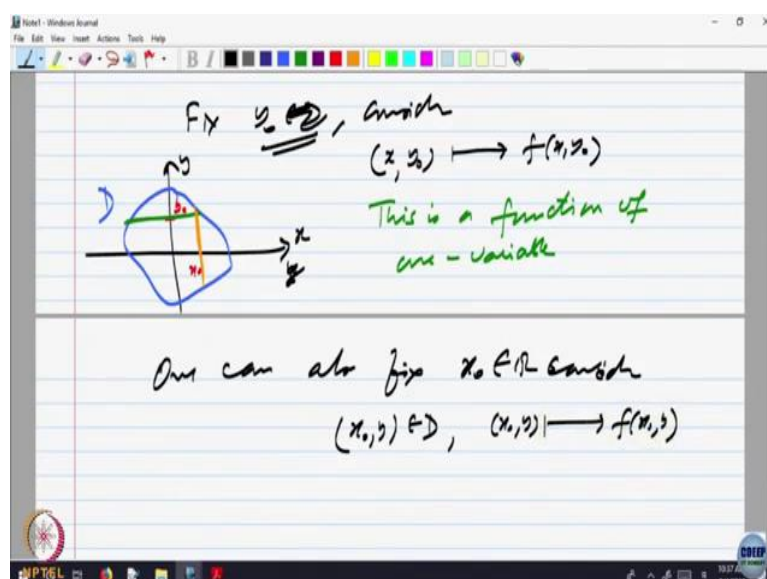 Note1 - Windows Journal
File Edit View Insert Actions Tools Help
B I
Fix y₀, consider
(x, y₀) ⟼ f(x, y₀)
y
D
y₀
This is a function of
one-variable
x
x₀
One can also fix x₀ ∈ ℝ consider
(x₀, y) ∈ D, (x₀, y) ⟼ f(x₀, y)
NPTEL
CDEEP